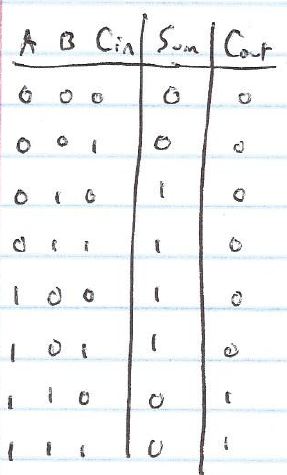 A B Cin Sum Cout
0 0 0 0 0
0 0 1 0 0
0 1 0 1 0
0 1 1 1 0
1 0 0 1 0
1 0 1 1 0
1 1 0 0 1
1 1 1 0 1